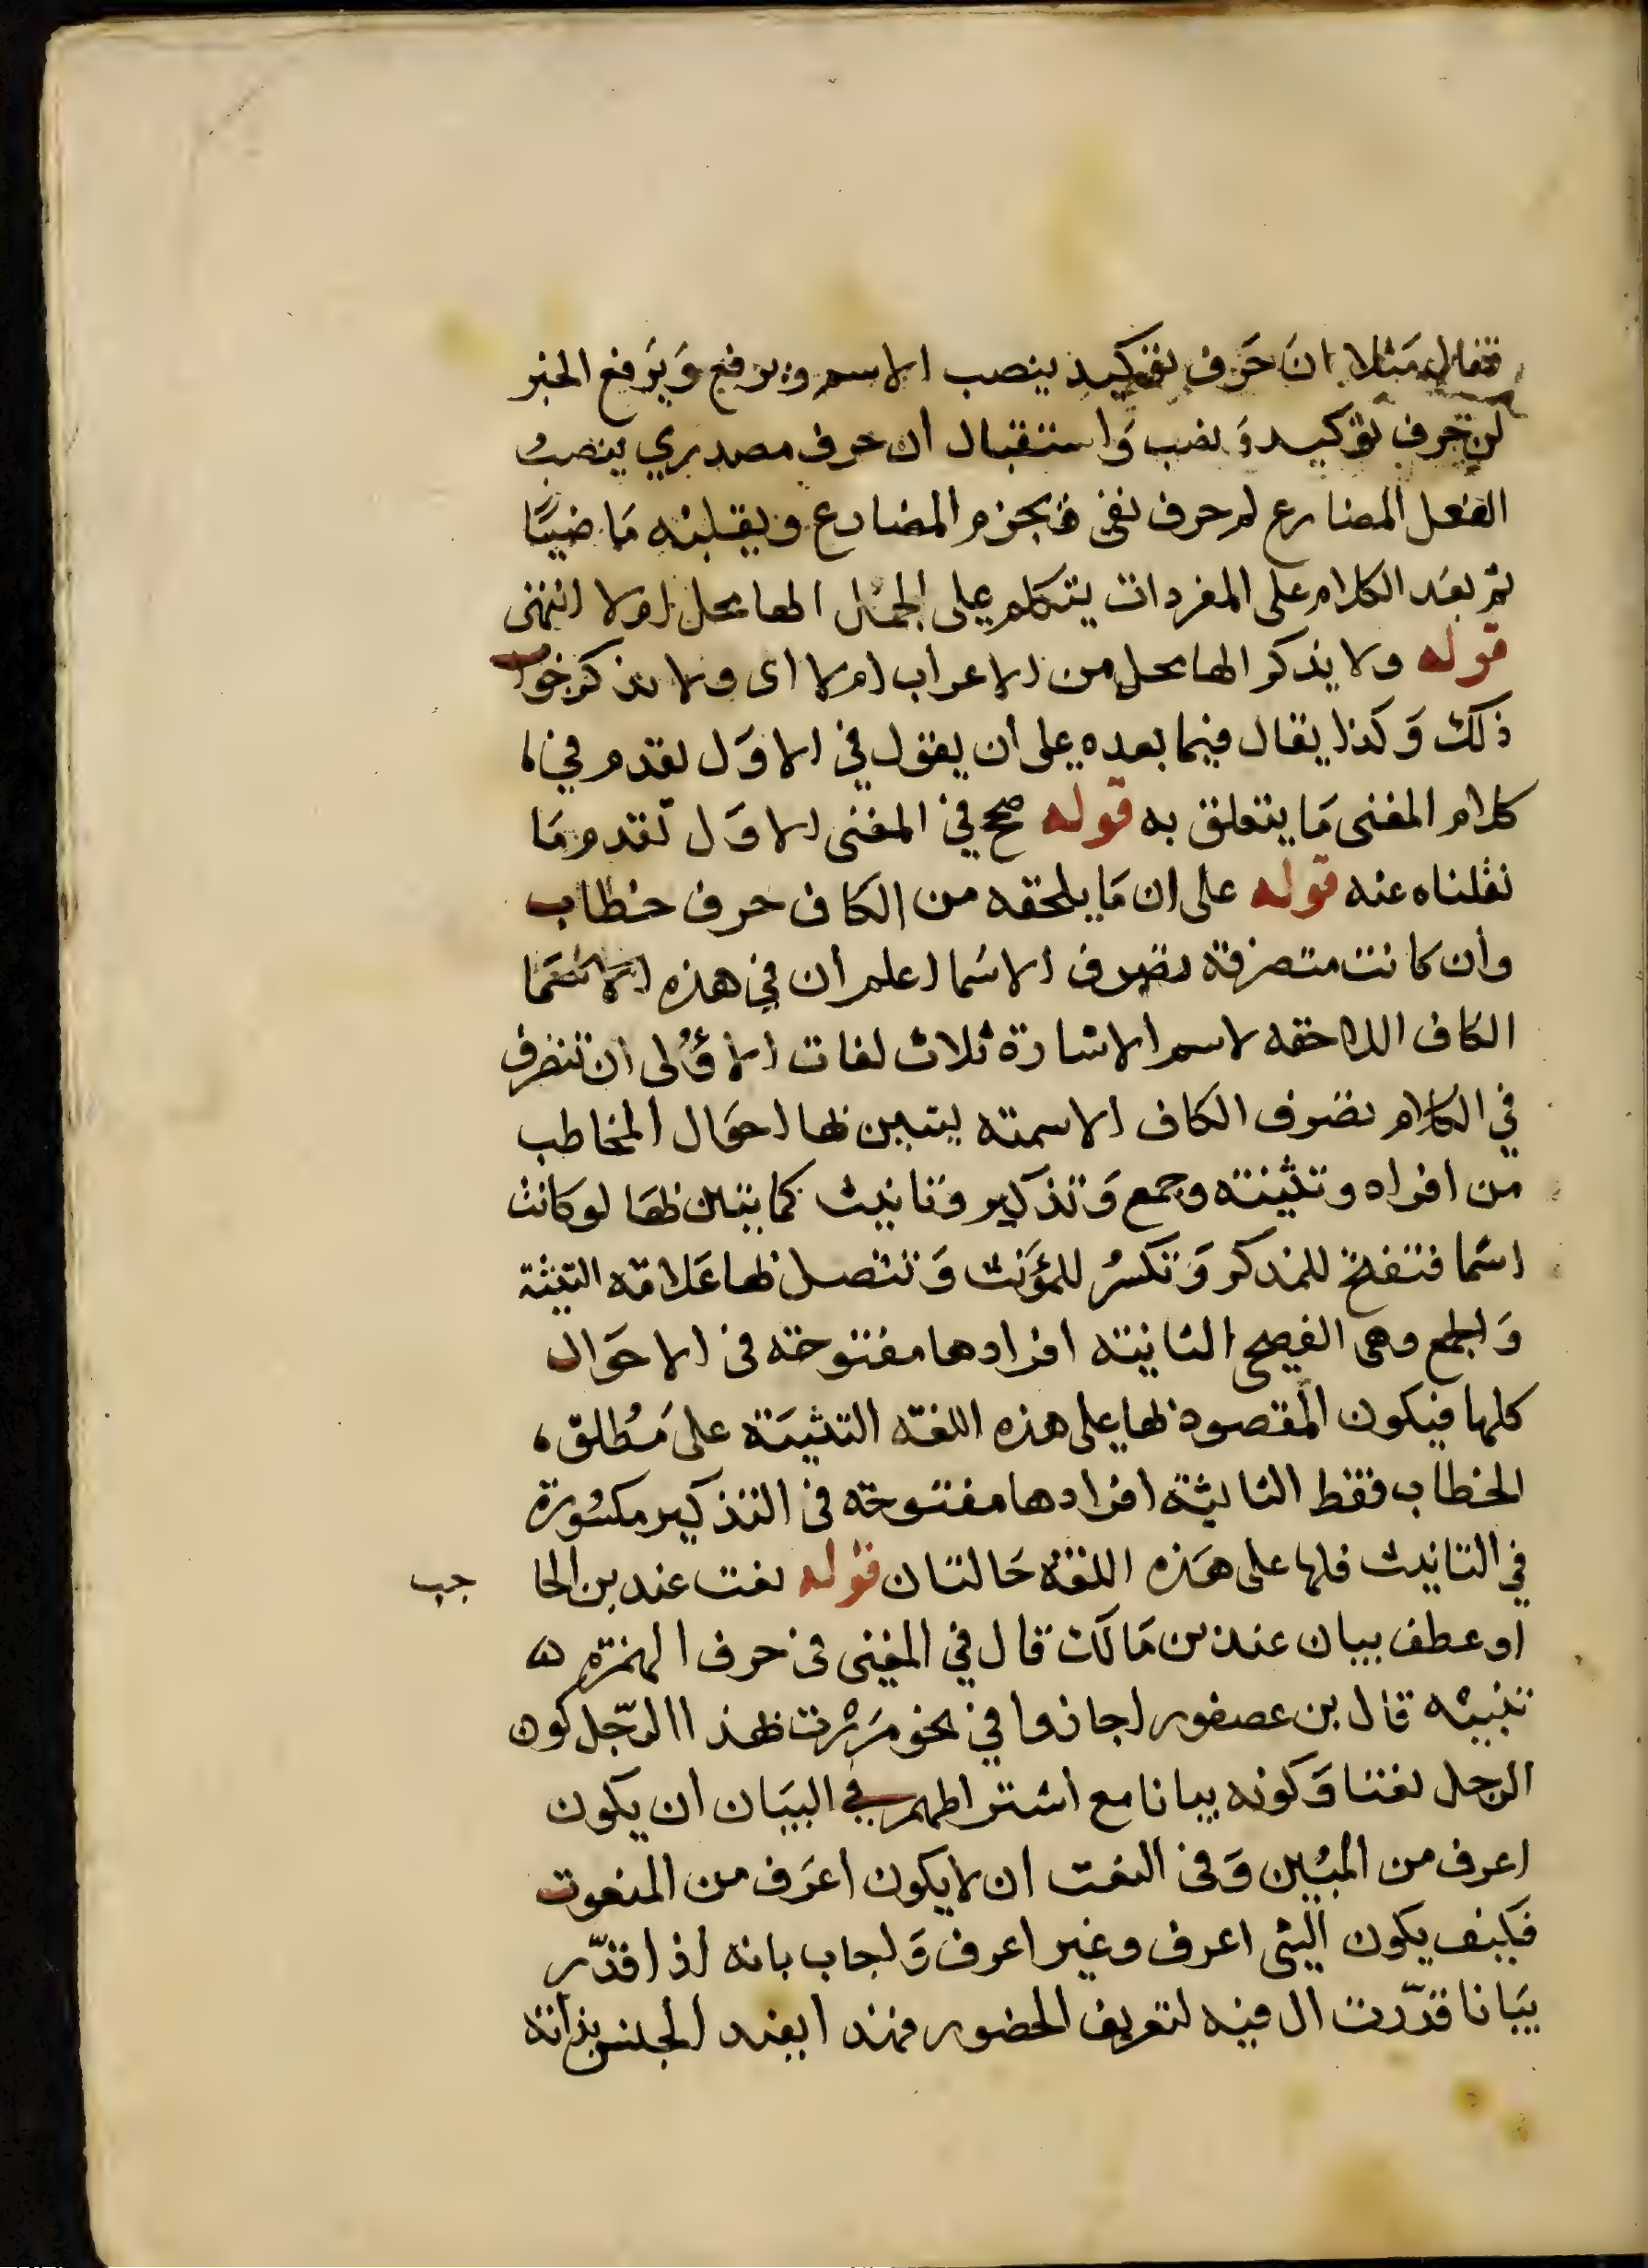 فتقال مثلا ان حَرف توكيد ينصب الاسم ويرفع وَيَرفع الخبر
لن حرف توكيد وَنصب وَاستقبال أن حرف مصدري ينصبُ
الفعل المضارع لم حرف نفى يجزم المضارع ويقلبه مَاضيًا
ثم بعَد الكلام على المفردات يتكلم على الجمل الها محل ام لا انتهى
قوله ولا يذكر الها محل من الاعراب ام لا اى ولا يذكر جَوَاب
ذلك وَكذا يقال فيما بعده على أن يقول في الاوَل تقدم في
كلام المغنى مَا يتعلق به قوله صح في المغنى الاوَل تقدم مَا
نقلناه عنه قوله على ان مَا يلحقه من الكاف حرف خطاب
وأن كانت متصرفة تصرف الاسَما اعلم أن في هذه
الكاف اللاحقه لاسم الاشارة ثلاث لغات الاوُلى ان تتصرف
في الكلام تصرف الكاف الاسميه يتبين بها احوَال المخاطب
من افراد وتثنيته وجمع وَتذكير وتانيث كما يتبين بهَا لو كانت
اسَما فتفتح للمذكر وَتكسَرُ للمؤَنث وَتتصل بها عَلامة التثنيه
وَالجمع وهى الفصحى الثانيه افرادها مفتوحه فى الاحوَال
كلها فيكون المقصود بها على هذه اللغه التثنيَة على مُطلق
الخطاب فقط الثالثة افرادها مفتوحه فى التذكير مكسُورة
في التانيث فلها على هَذه اللغة حَالتان قوله نعت عند بن الحا جب
او عطف بيان عند بن مَالك قال في المغنى فى حرف الهمزة
تنبيه قال بن عصفور اجازوا في نحو مَرَرْت بهذا الرّجل كون
الرجل نعتا وَكونه بيانا مع اشتراطهم في البيَان ان يكون
اعرف من المبُين وَفى النعت ان لا يكون اعَرف من المنعوت
فكيف يكون الشى اعرف وغير اعرف وَاجاب بانه اذا قدّر
بيَانا قدّرت ال فيه لتعريف الحضور فهذا يفيد الجنس بذاته